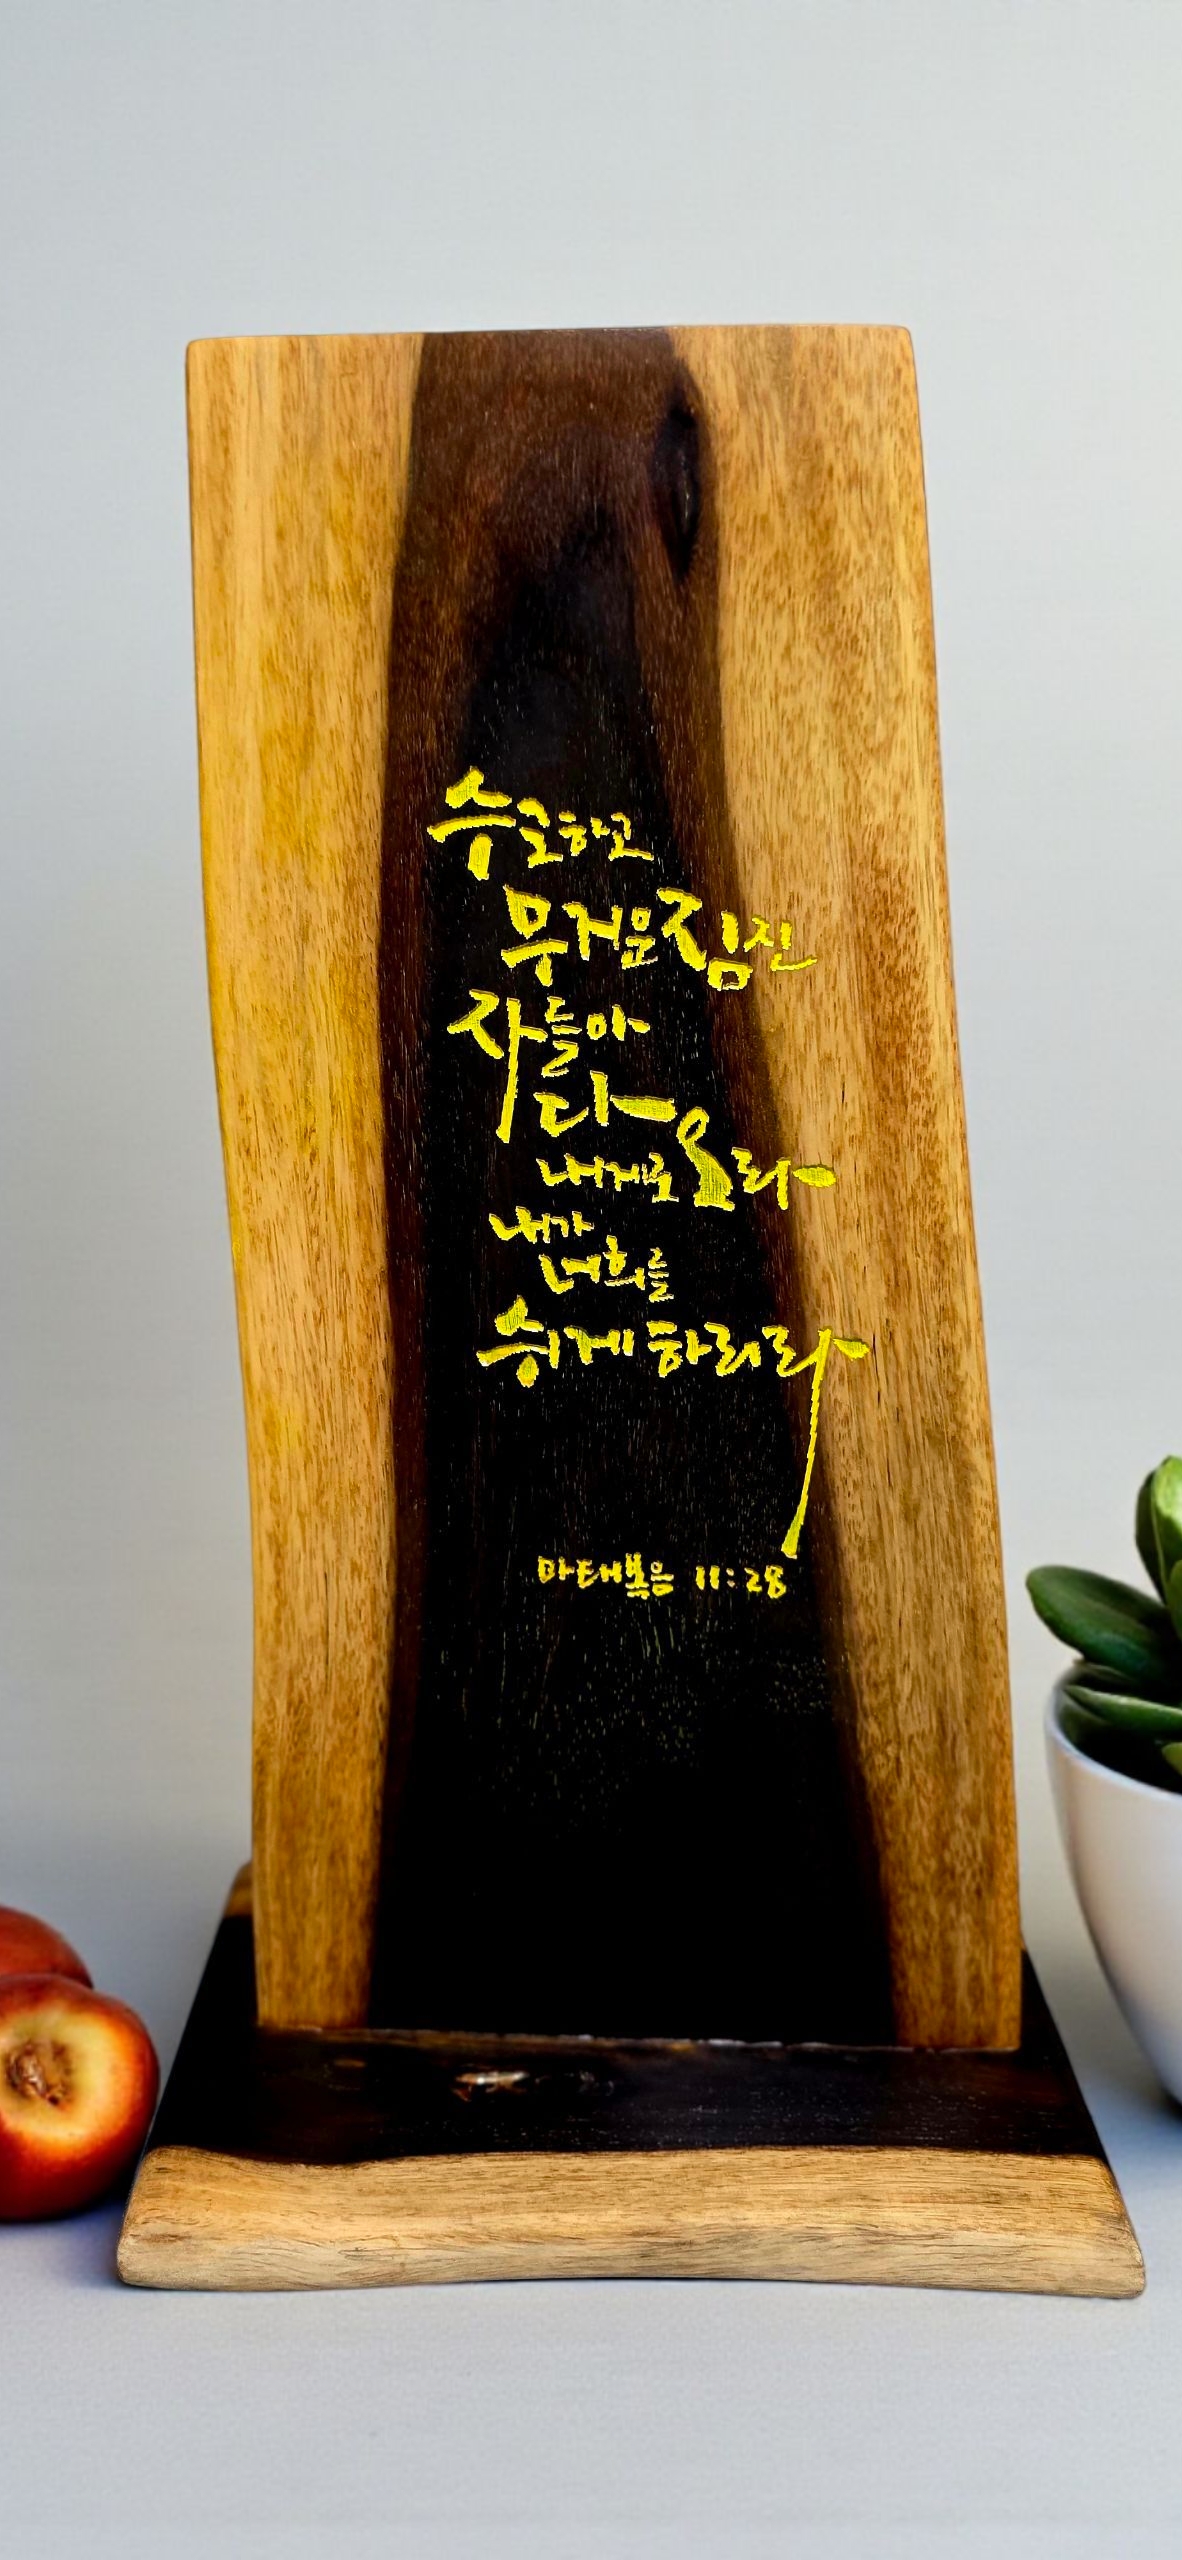 수고하고
무거운 짐진
자들아
다
내게로 오라
내가
너희를
쉬게 하리라
마태복음 11:28